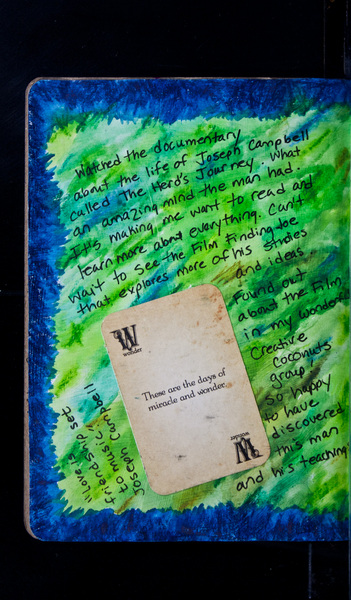 Watched the documentary
about the life of Joseph Campbell
called The Hero's Journey. What
an amazing mind the man had.
It's making me want to read and
learn more about everything. Can't
wait to see the Film Finding Joe
that explores more of his studies
and ideas
Found out
about the Film
in my wondrous
Creative
Coconuts
group
so happy
to have
discovered
this man
and his teaching
W
wonder
These are the days of
miracle and wonder.
W
wonder
"Love is
friendship set
to music."
Joseph Campbell